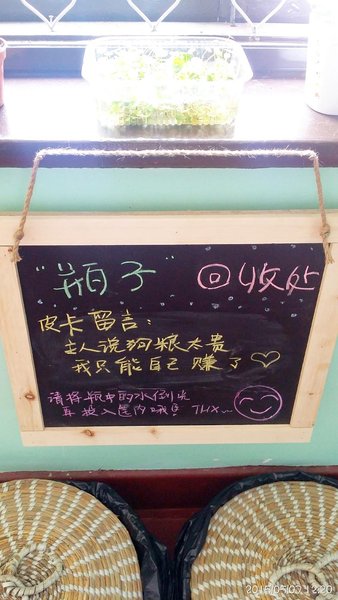 "瓶子" 回收处
皮卡留言：
主人说狗粮太贵
我只能自己赚了
请将瓶中的水倒光
再投入筐内哦！ THX~
2016/05/02 12:20